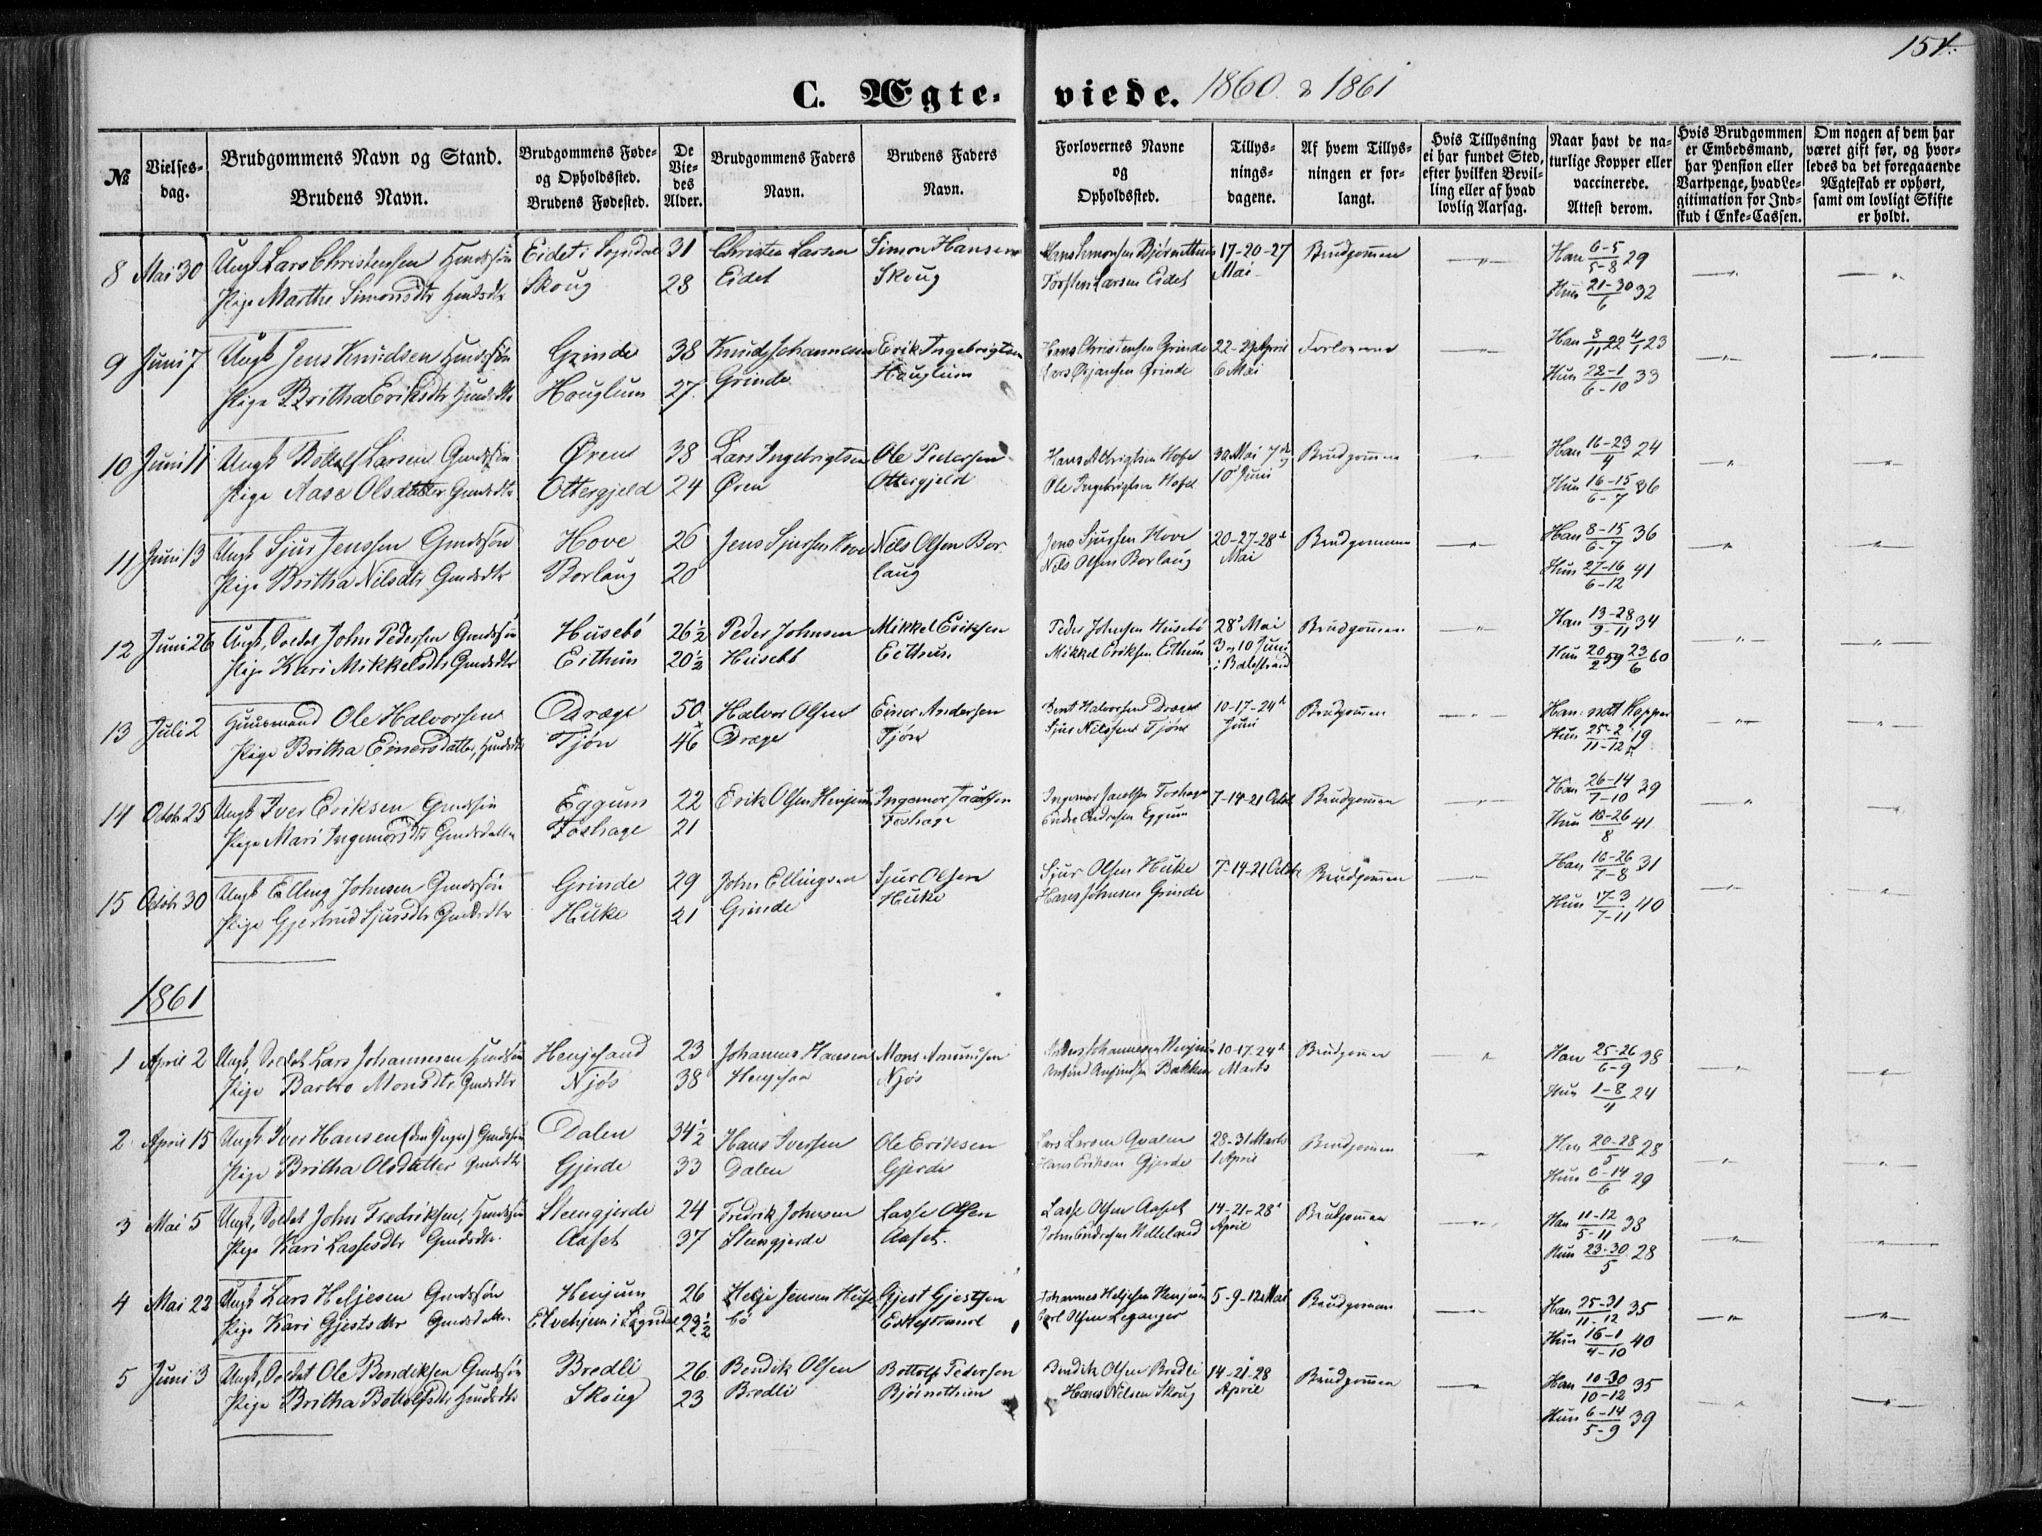 154.
C. Ægteviede. 1860 & 1861
№
Vielsesdag.
Brudgommens Navn og Stand.
Brudens Navn.
Brudgommens Føde-
og Opholdssted.
Brudens Fødested.
De Viedes Alder.
Brudgommens Faders
Navn.
Brudens Faders
Navn.
Forlovernes Navne
og
Opholdssted.
Tillysningsdagene.
Af hvem Tillysningen er forlangt.
Hvis Tillysning ei har fundet Sted, efter hvilken Bevilling eller af hvad lovlig Aarsag.
Naar havt de naturlige Kopper eller vaccinerede.
Attest derom.
Hvis Brudgommen er Embedsmand, har Pension eller Vartpenge, hvad Legitimation for Indskud i Enke-Cassen.
Om nogen af dem har været gift før, og hvorledes da det foregaaende Ægteskab er ophørt, samt om lovligt Skifte er holdt.
8 Mai 30 Ungk Lars Christensen Huusmsøn Eidet i Sogndal 31 Christen Larsen Simon Hansen 17-20-27 Brudgommen Han 6-5/5-8 29
Pige Marthe Simonsdtr Skoug 28 Eidet Skoug Torsten Larsen Eidet Mai Hun 21-30/6 32
9 Juni 7 Ungk Jens Knudsen Grinde 38 Knud Johannesen Erik Ingebrigtsen Hans Christensen Grinde 22-29 April Forloverne Han 3/11 22 4/1 23
Pige Britha Eriksdtr Houglum 27 Grinde Houglum Lars Ørjansen Grinde 6 Mai Hun 22-1/6-10 33
10 Juni 11 Ungk Botolf Larsen Gmdssøn Øren 38 Lars Ingebrigtsen Ole Pedersen Hans Albrigtsen Hofst 30 Mai 7de Brudgommen Han 16-23/4 24
Pige Aase Olsdatter Gmdsdtr Ottergjeld 24 Øren Ottergjeld Ole Ingebrigtsen 10 Juni Hun 16-15/6-7 36
11 Juni 13 Ungk Sjur Jenssen Gmdssøn Hove 26 Jens Sjursen Hove Nils Olsen Bor- Jens Sjursen Hove 20-27-28d Brudgommen Han 8-15/6-7 36
Pige Britha Nilsdtr Gmdsdtr Borlaug 20 laug Nils Olsen Borlaug Mai Hun 27-16/6-12 41
12 Juni 26 Ungk, Soldat John Pedersen Gmdssøn Husebø 26½ Peder Johnsen Mikkel Eriksen Peder Johnsen Husebø 28d Mai Brudgommen Han 13-28/9-11 34
Pige Kari Mikkelsdtr Gmdsdtr Eithun 20½ Husebø Eithun Mikkel Eriksen Eithun 3 og 10 Juni Hun 20/2 59 23/6 60
i Balestrand
13 Juli 2 Huusmand Ole Halvorsen Dræge 50 Halvor Olsen Einer Andersen Bent Halvorsen Dræge 10-17-24d Brudgommen Han: natl Kopper
Pige Britha Einersdatter, Tjøn 46 Dræge Tjøn Sjur Nilssen Tjøn Juni Hun 25-2/11-12 19
14 Octob 25 Ungk Iver Eriksen Gmdssøn Eggum 22 Erik Olsen Henjum Ingemor 7-14-21 Octob Brudgommen Han 26-14/7-10 39
Pige Mari Ingemorsdtr Gmdsdatter Foshage 21 Foshage Endre Andersen Eggum Hun 18-26/8 41
15 Octob 30 Ungk Elling Johnsen Gmdssøn Grinde 29 John Ellingsen Sjur Olsen Sjur Olsen Huke 7-14-21 Octob Brudgommen Han 16-26/7-8 31
Pige Gjertrud Sjursdtr Gmdsdtr Huke 21 Grinde Huke Hans Johnsen Grinde Hun 17-3/7-11 40
1861
1 April 2 Ungk, Soldat Lars Johannesen Henjesand 23 Johannes Hansen Mons Amundsen Anders Johannesen 10-17-24d Brudgommen Han 25-26/6-9 38
Pige Barbro Monsdtr Gmdsdtr Njøs 38 Njøs Bakken Marts Hun 1-8/4 24
2 April 15 Ungk Iver Hansen (den Yngre) Gmdssøn Dalen 34½ Hans Iversen Ole Eriksen Lars Larsen Qvalen 28-31 Marts Brudgommen Han 20-28/5 28
Pige Britha Olsdatter Gmdsdtr Gjerde 33 Dalen Gjerde Hans Eriksen Gjerde 1 April Hun 6-14/6 29
3 Mai 5 Ungk, Soldat John Fredriksen, Steengjerde 24 Fredrik Johnsen Lasse Olsen Lasse Olsen Aaset 14-21-28d Brudgommen Han 11-12/5-11 38
Pige Kari Lassesdtr Gmdsdtr Aaset 37 Steengjerde Aaset. John Endresen Helleland April Hun 23-30/5 28
4 Mai 22 Ungk Lars Heljesen Gmdssøn Henjum 26 Helje Jensen Huse- Gjest Gjestsen Johannes Heljesen Henjum 5-9-12 Mai Brudgommen Han 25-31/11-12 35
Pige Kari Gjestsdtr Gmdsdatter Elvehjem i Sogndal 23½ bø Carl Olsen Leganger Hun 16-1/4-10 40
5 Juni 3 Ungk, Soldat Ole Bendiksen Gmdssøn Bredli 26 Bendik Olsen Bottolf Pedersen Bendik Olsen Bredli 14-21-28 Brudgommen Han 10-30/10-12 35
Pige Britha Botolfsdtr Skoug 23 Bredli Hans Nilsen Skoug April Hun 6-14/5-9 39